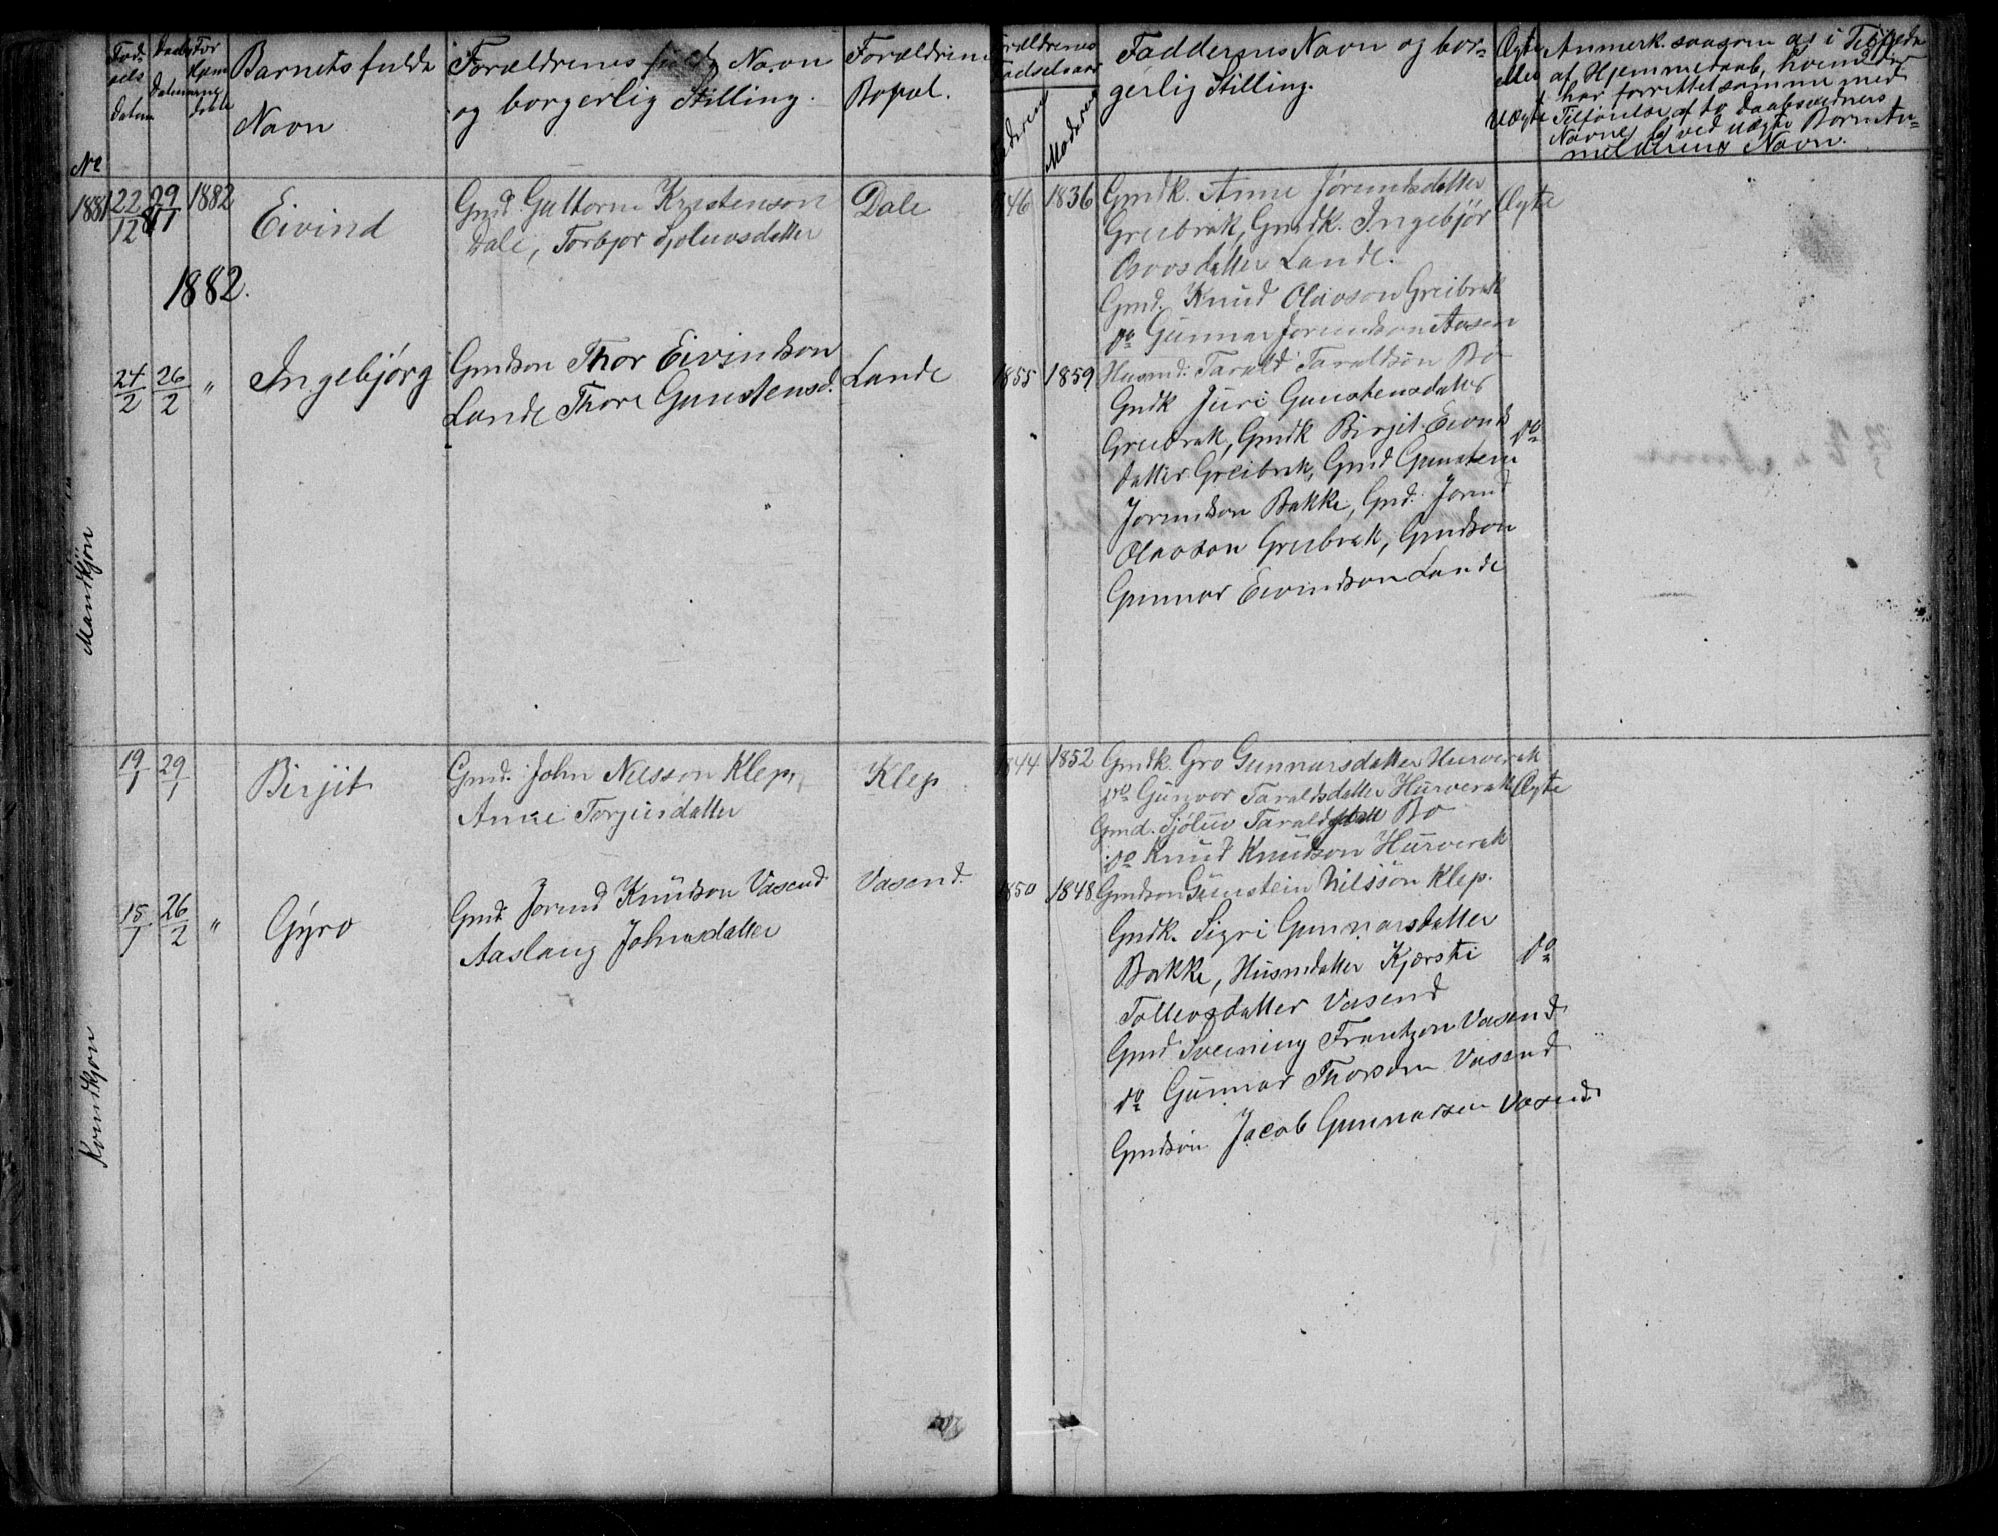 No
Fødsels
datum
Daabs
Datum
Barnets fulde
Navn
Forældrenes fulde Navn
og borgerlig Stilling.
Forældrenes
Bopæl.
Forældrenes
Fødselsaar
Faderens
Moderens
Faddernes Navn og bor-
gerlig Stilling.
Ægte
eller
Uægte
Anmerk. saasom as i Tilfælde
af Hjemmedaab, hvem der
har forrettet samme med
Tilføielse af to Daabsvidners
Navne, b) ved uægte Børn An-
melderens Navn.
Mandkjøn
1881 22/12 29/1 1882
Eivind
Gmd. Guttorm Kristenson
Dale, Torbjor Sjøluvsdatter
Dale
1846 1836
Gmdk. Anne Jørundsdatter
Greibrak, Gmdk. Ingebjør
Osvosdatter Lande.
Gmd. Knud Olavson Greibrak
do Gunnar Jorundson Aasen
Husmd. Tarald Taraldson Bo
Ægte
1882.
24/2 26/2 "
Ingebjørg
Gmdson Thor Eivindson
Lande Thore Gunstensd.
Lande
1855 1859
Gmdk Juri Gunstensdatter
Greibrak, Gmdk Birjit Eivinds
datter Greibrak, Gmd Gunstein
Jorundson Bakke, Gmd. Jorund
Olavson Greibrak, Gmdson
Gunnar Eivindson Lande
do
Kvindkjøn
19/1 29/1
Birjit
Gmd. John Nilsson Klep,
Anne Torjusdatter
Klep
1844 1852
Gmdk. Gro Gunnarsdatter Hurverak
do Gunvor Taraldsdatter Hurverak
Gmd. Sjøluv Tarald Bo
do Knud Knudson Hurverak
Gmdson Gunstein Nilsson Klep.
Ægte
15/1 26/2 "
Gyro
Gmd. Jorund Knudson Vasend
Aaslaug Johnsdatter
Vasend.
1850 1848
Gmdk. Sigri Gunnarsdatter
Bakke, Husmdatter Kjersti
Tollevsdatter Vasend
Gmd Sveinung Frantzon Vasend
do Gunnar Thorson Vasend
Gmdson Jacob Gunnarsen Vasend
do